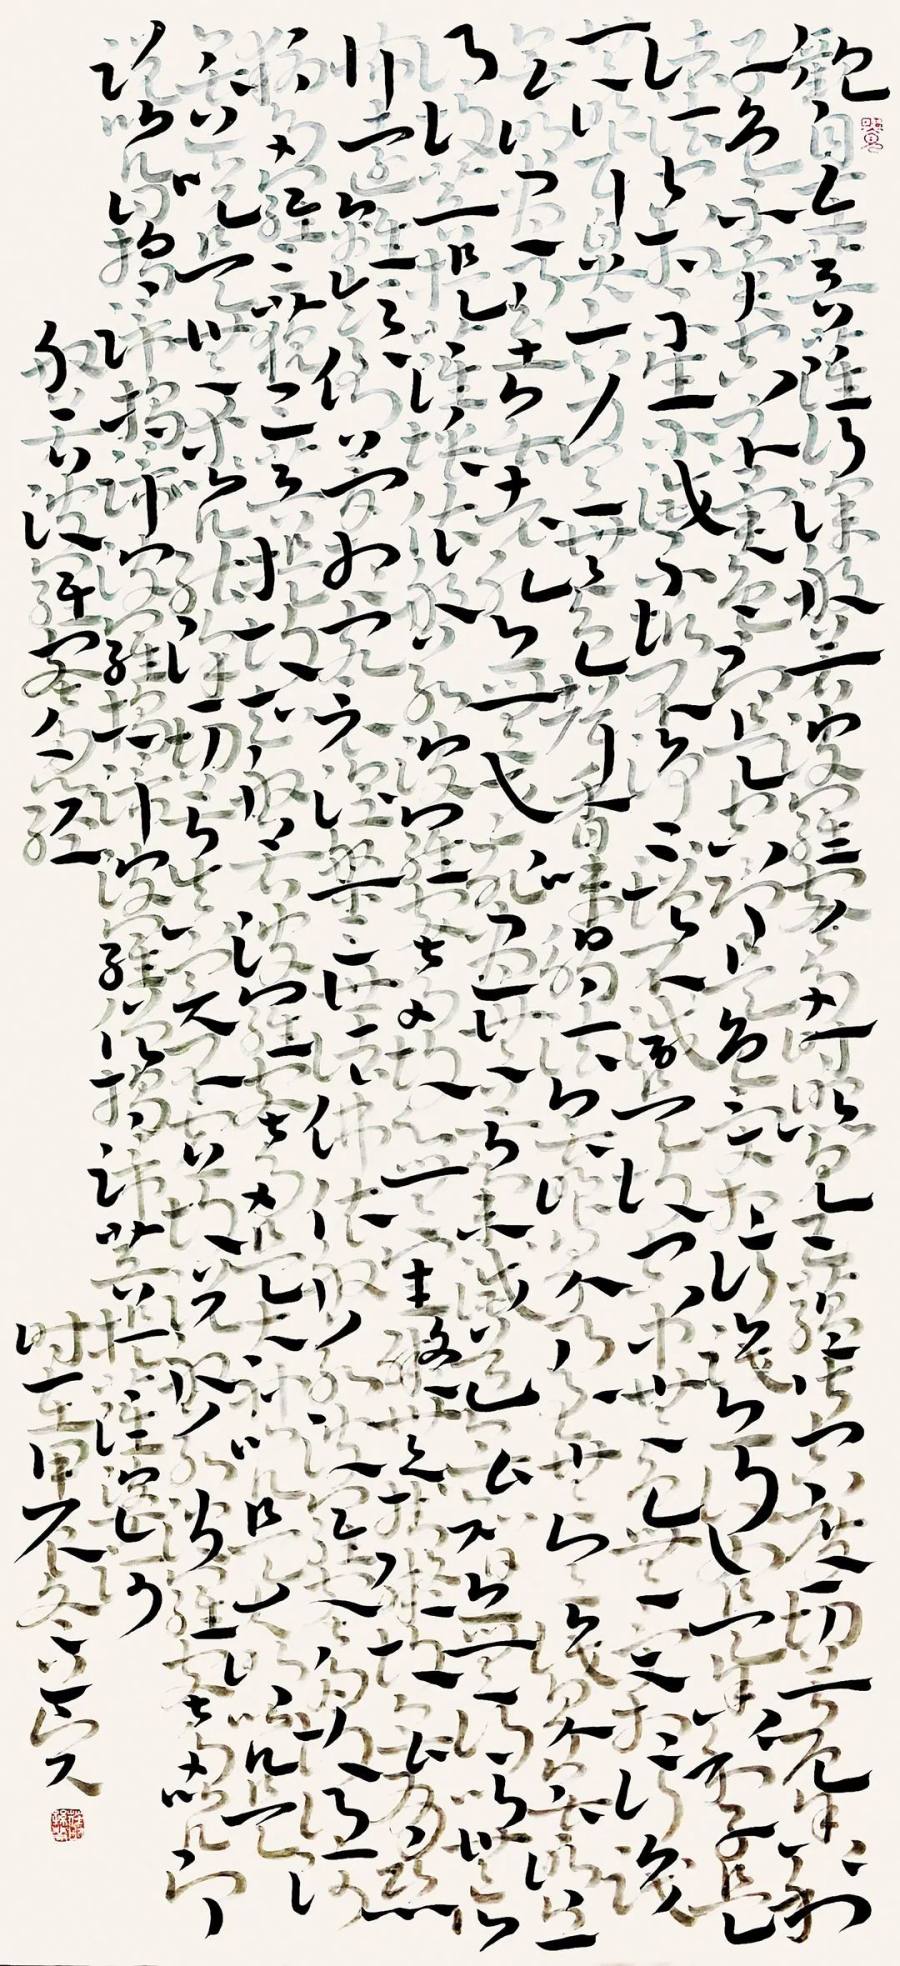 觀自在菩薩行深般若波羅蜜多時照見五蘊皆空度一切苦厄舍利
子色不異空空不異色色即是空空即是色受想行識亦復如是舍利子是
諸法空相不生不滅不垢不淨不增不減是故空中無色無受想行識
無眼耳鼻舌身意無色聲香味觸法無眼界乃至無意識界無無明亦
無無明盡乃至無老死亦無老死盡無苦集滅道無智亦無得以無所
得故菩提薩埵依般若波羅蜜多故心無罣礙無罣礙故無有恐
怖遠離顛倒夢想究竟涅槃三世諸佛依般若波羅蜜多故得阿
耨多羅三藐三菩提故知般若波羅蜜多是大神咒是大明咒是
無上咒是無等等咒能除一切苦真實不虛故說般若波羅蜜多咒即
說咒曰揭諦揭諦波羅揭諦波羅僧揭諦菩提薩婆訶
般若波羅蜜多心經
時在甲